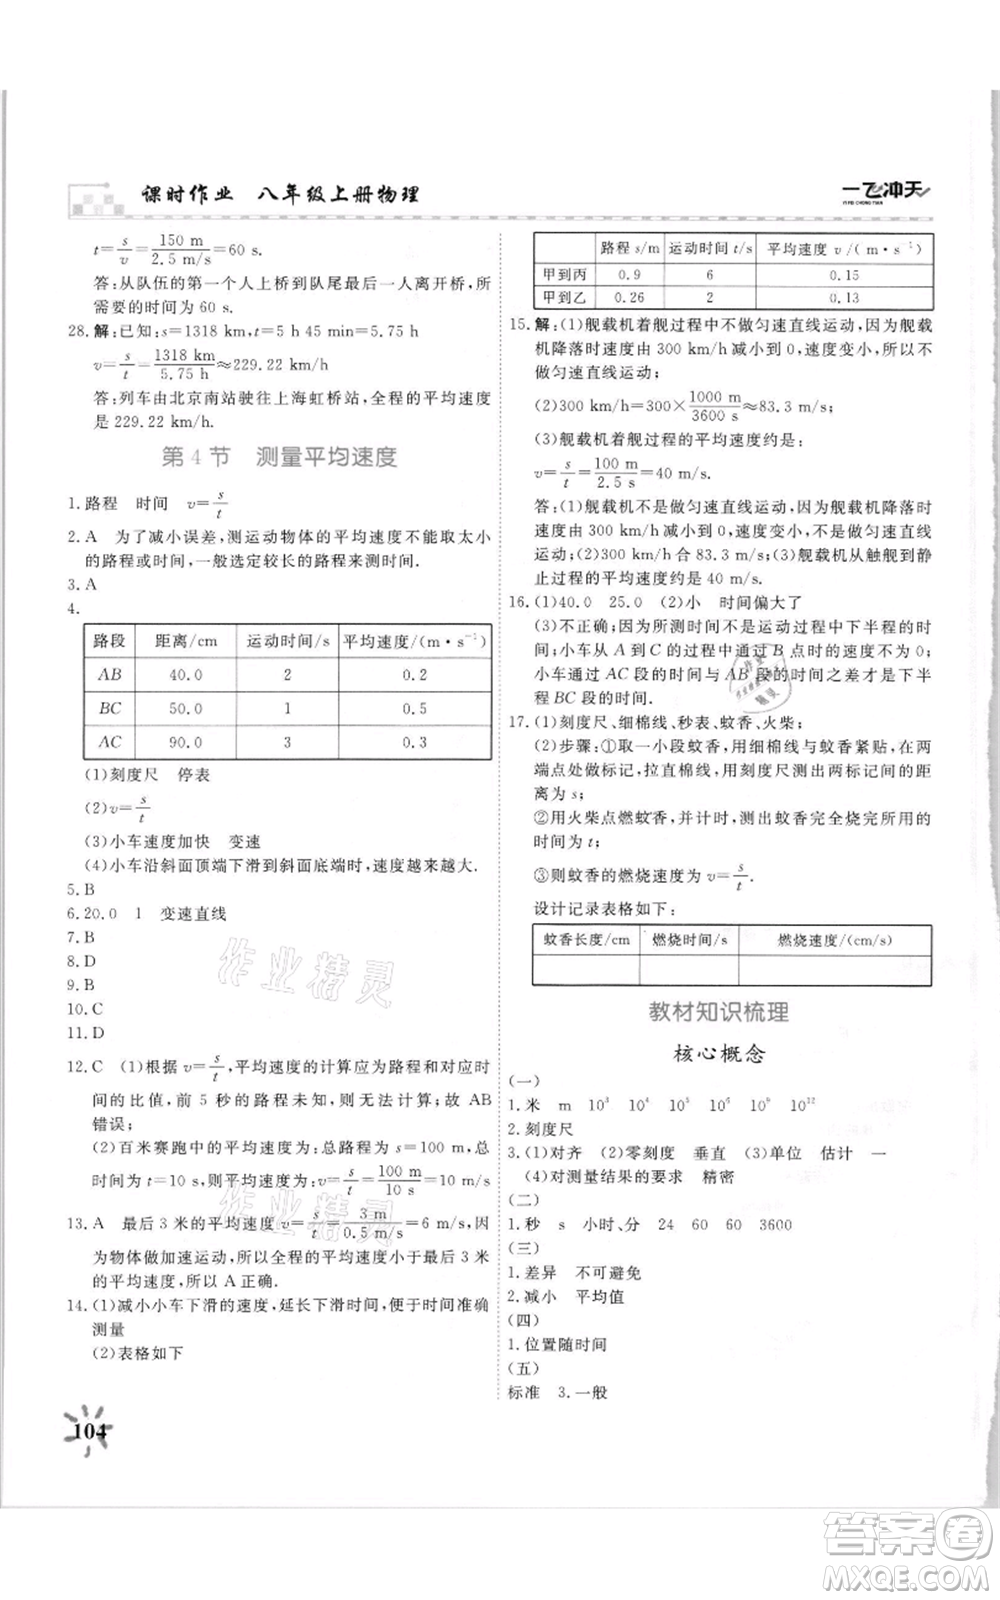 课时作业 八年级上册物理
一飞冲天
YI FEI CHONG TIAN
t=s/v=150 m/2.5 m/s=60 s.
答:从队伍的第一个人上桥到队尾最后一人离开桥,所
需要的时间为 60 s.
28.解:已知:s=1318 km,t=5 h 45 min=5.75 h
v=s/t=1318 km/5.75 h≈229.22 km/h
答:列车由北京南站驶往上海虹桥站,全程的平均速度
是 229.22 km/h.
第 4 节 测量平均速度
1.路程 时间 v=s/t
2.A 为了减小误差,测运动物体的平均速度不能取太小
的路程或时间,一般选定较长的路程来测时间.
3.A
4.
路段 距离/cm 运动时间/s 平均速度/(m·s⁻¹)
AB 40.0 2 0.2
BC 50.0 1 0.5
AC 90.0 3 0.3
(1)刻度尺 停表
(2)v=s/t
(3)小车速度加快 变速
(4)小车沿斜面顶端下滑到斜面底端时,速度越来越大.
5.B
6.20.0 1 变速直线
7.B
8.D
9.B
10.C
11.D
12.C (1)根据 v=s/t,平均速度的计算应为路程和对应时
间的比值,前 5 秒的路程未知,则无法计算;故 AB
错误;
(2)百米赛跑中的平均速度为:总路程为 s=100 m,总
时间为 t=10 s,则平均速度为:v=s/t=100 m/10 s
13.A 最后 3 米的平均速度 v=s/t=3 m/0.5 s=6 m/s,因
为物体做加速运动,所以全程的平均速度小于最后 3 米
的平均速度,所以 A 正确.
14.(1)减小小车下滑的速度,延长下滑时间,便于时间准确
测量
(2)表格如下
104
路程 s/m 运动时间 t/s 平均速度 v/(m·s⁻¹)
甲到丙 0.9 6 0.15
甲到乙 0.26 2 0.13
15.解:(1)舰载机着舰过程中不做匀速直线运动,因为舰载
机降落时速度由 300 km/h 减小到 0,速度变小,所以不
做匀速直线运动;
(2)300 km/h=300×1000 m/3600 s≈83.3 m/s;
(3)舰载机着舰过程的平均速度约是:
v=s/t=100 m/2.5 s=40 m/s.
答:(1)舰载机不是做匀速直线运动,因为舰载机降落时
速度由 300 km/h 减小到 0,速度变小,不是做匀速直线
运动;(2)300 km/h 合 83.3 m/s;(3)舰载机从触舰到静
止过程的平均速度约是 40 m/s.
16.(1)40.0 25.0 (2)小 时间偏大了
(3)不正确;因为所测时间不是运动过程中下半程的时
间;小车从 A 到 C 的过程中经过 B 点时的速度不为 0;
小车通过 AC 段的时间与 AB 段的时间之差不等于下半
程 BC 段的时间.
17.(1)刻度尺、细棉线、秒表、蚊香、火柴;
(2)步骤:①取一小段蚊香,用细棉线与蚊香紧贴,在两
端点处做标记,拉直棉线,用刻度尺测出两标记间的距
离为 s;
②用火柴点燃蚊香,同时计时,测出蚊香完全烧完所用的
时间为 t;
③则蚊香的燃烧速度为 v=s/t.
设计记录表格如下:
蚊香长度/cm 燃烧时间/s 燃烧速度/(cm/s)
教材知识梳理
核心概念
(一)
1.米 m 10³ 10⁴ 10⁶ 10¹⁰ 10¹²
2.刻度尺
3.(1)对齐 (2)零刻度 垂直 单位 估计 一
(4)对测量结果的要求 精密
(二)
1.秒 s 小时、分 24 60 60 3600
(三)
1.差异 不可避免
2.减小 平均值
(四)
1.位置随时间
(五)
标准 3.一般
作业精灵
作业精灵
答案卷
MXQE.COM